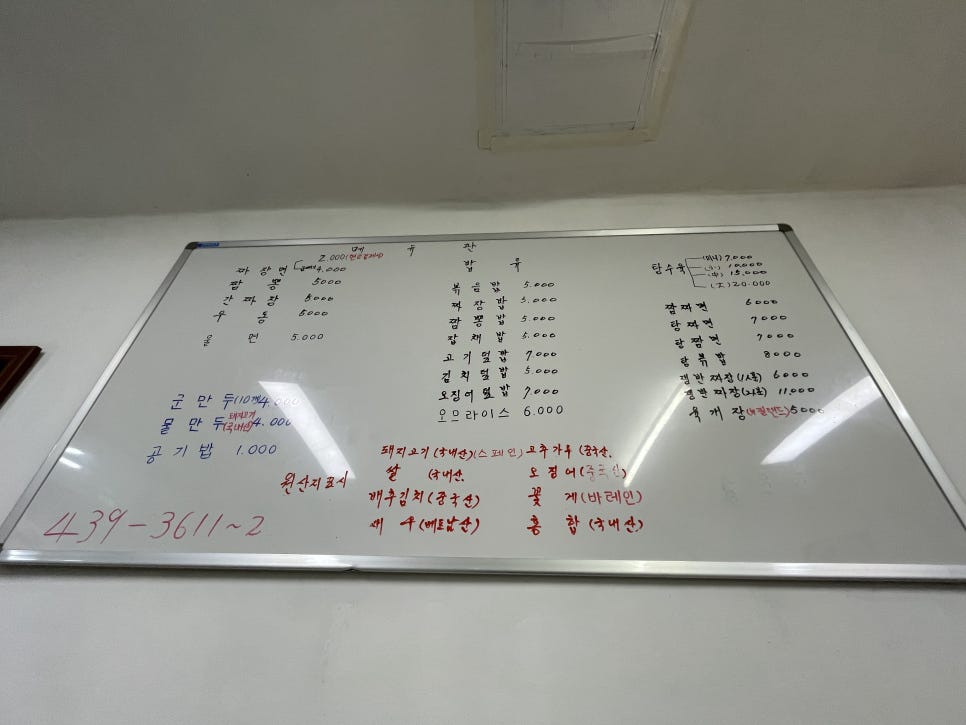 메 뉴 판
짜 장 면 2.000(현금결제시)
4.000
짬 뽕 5000
간 짜 장 5000
우 동 5000
울 면 5.000
군 만 두(10개)4.000
물 만 두 돼지고기(국내산)4.000
공 기 밥 1.000
밥 류
볶 음 밥 5.000
짜 장 밥 5.000
짬 뽕 밥 5.000
잡 채 밥 5.000
고 기 덮 밥 7.000
김 치 덮 밥 5.000
오징어 덮 밥 7.000
오므라이스 6.000
탕수육 (미니)7.000
(小) 10.000
(中) 15.000
(大)20.000
짬 짜 면 6000
탕 짜 면 7000
탕 짬 면 7000
탕 볶 밥 8000
쟁반 짜장(1人분) 6000
쟁반 짜장(2人분) 11.000
육 개 장(뉴질랜드)5000
원산지표시
돼지고기(국내산)(스페인) 고추가루(중국산)
쌀 (국내산) 오 징 어(중국산)
배추김치(중국산) 꽃 게(바레인)
새 우(베트남산) 홍 합(국내산)
439-3611~2